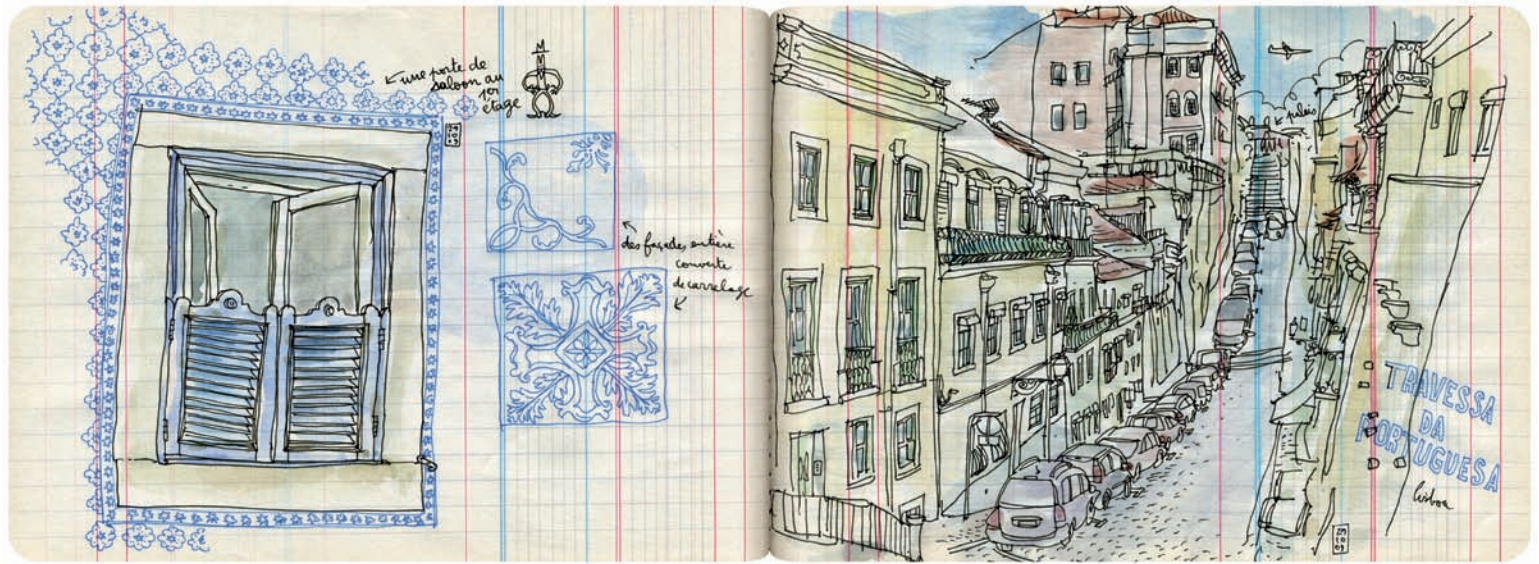 une porte de
saloon au
1er
étage
des façades entière
couverte
de carrelage
palais
TRAVESSA
DA
PORTUGUESA
Lisboa